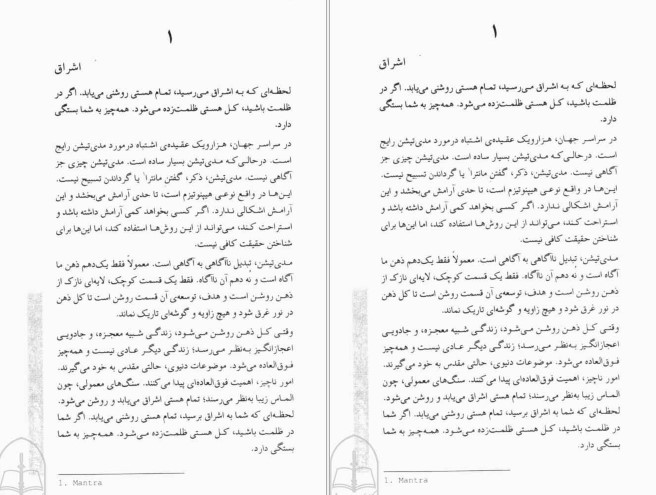 ۱
اشراق
لحظه‌ای که به اشراق می‌رسید، تمام هستی روشنی می‌یابد. اگر در
ظلمت باشید، کل هستی ظلمت‌زده می‌شود. همه‌چیز به شما بستگی
دارد.
در سراسر جهان، هزارویک عقیده‌ی اشتباه درمورد مدی‌تیشن رایج
است. درحالی‌که مدی‌تیشن بسیار ساده است. مدی‌تیشن چیزی جز
آگاهی نیست. مدی‌تیشن، ذکر، گفتن مانترا۱ یا گرداندن تسبیح نیست.
این‌ها در واقع نوعی هیپنوتیزم است، تا حدی آرامش می‌بخشد و این
آرامش اشکالی ندارد. اگر کسی بخواهد کمی آرامش داشته باشد و
استراحت کند، می‌تواند از این روش‌ها استفاده کند، اما این‌ها برای
شناختن حقیقت کافی نیست.
مدی‌تیشن، تبدیل ناآگاهی به آگاهی است. معمولاً فقط یک‌دهم ذهن ما
آگاه است و نُه دهم آن ناآگاه. فقط یک قسمت کوچک، لایه‌ای نازک از
ذهن روشن است و هدف، توسعه‌ی آن قسمت روشن است تا کل ذهن
در نور غرق شود و هیچ زاویه و گوشه‌ای تاریک نماند.
وقتی کل ذهن روشن می‌شود، زندگی شبیه معجزه، و جادویی
اعجازانگیز به‌نظر می‌رسد؛ زندگی دیگر عادی نیست و همه‌چیز
فوق‌العاده می‌شود. موضوعات دنیوی، حالتی مقدس به خود می‌گیرند.
امور ناچیز، اهمیت فوق‌العاده‌ای پیدا می‌کنند. سنگ‌های معمولی، چون
الماس زیبا به‌نظر می‌رسند؛ تمام هستی می‌یابد و روشن می‌شود.
لحظه‌ای که شما به اشراق برسید، تمام هستی روشنی می‌یابد. اگر شما
در ظلمت باشید، کل هستی ظلمت‌زده می‌شود. همه‌چیز به شما
بستگی دارد.
1. Mantra
۱
اشراق
لحظه‌ای که به اشراق می‌رسید، تمام هستی روشنی می‌یابد. اگر در
ظلمت باشید، کل هستی ظلمت‌زده می‌شود. همه‌چیز به شما بستگی
دارد.
در سراسر جهان، هزارویک عقیده‌ی اشتباه درمورد مدی‌تیشن رایج
است. درحالی‌که مدی‌تیشن بسیار ساده است. مدی‌تیشن چیزی جز
آگاهی نیست. مدی‌تیشن، ذکر، گفتن مانترا۱ یا گرداندن تسبیح نیست.
این‌ها در واقع نوعی هیپنوتیزم است، تا حدی آرامش می‌بخشد و این
آرامش اشکالی ندارد. اگر کسی بخواهد کمی آرامش داشته باشد و
استراحت کند، می‌تواند از این روش‌ها استفاده کند، اما این‌ها برای
شناختن حقیقت کافی نیست.
مدی‌تیشن، تبدیل ناآگاهی به آگاهی است. معمولاً فقط یک‌دهم ذهن ما
آگاه است و نُه دهم آن ناآگاه. فقط یک قسمت کوچک، لایه‌ای نازک از
ذهن روشن است و هدف، توسعه‌ی آن قسمت روشن است تا کل ذهن
در نور غرق شود و هیچ زاویه و گوشه‌ای تاریک نماند.
وقتی کل ذهن روشن می‌شود، زندگی شبیه معجزه، و جادویی
اعجازانگیز به‌نظر می‌رسد؛ زندگی دیگر عادی نیست و همه‌چیز
فوق‌العاده می‌شود. موضوعات دنیوی، حالتی مقدس به خود می‌گیرند.
امور ناچیز، اهمیت فوق‌العاده‌ای پیدا می‌کنند. سنگ‌های معمولی، چون
الماس زیبا به‌نظر می‌رسند؛ تمام هستی می‌یابد و روشن می‌شود.
لحظه‌ای که شما به اشراق برسید، تمام هستی روشنی می‌یابد. اگر شما
در ظلمت باشید، کل هستی ظلمت‌زده می‌شود. همه‌چیز به شما
بستگی دارد.
1. Mantra